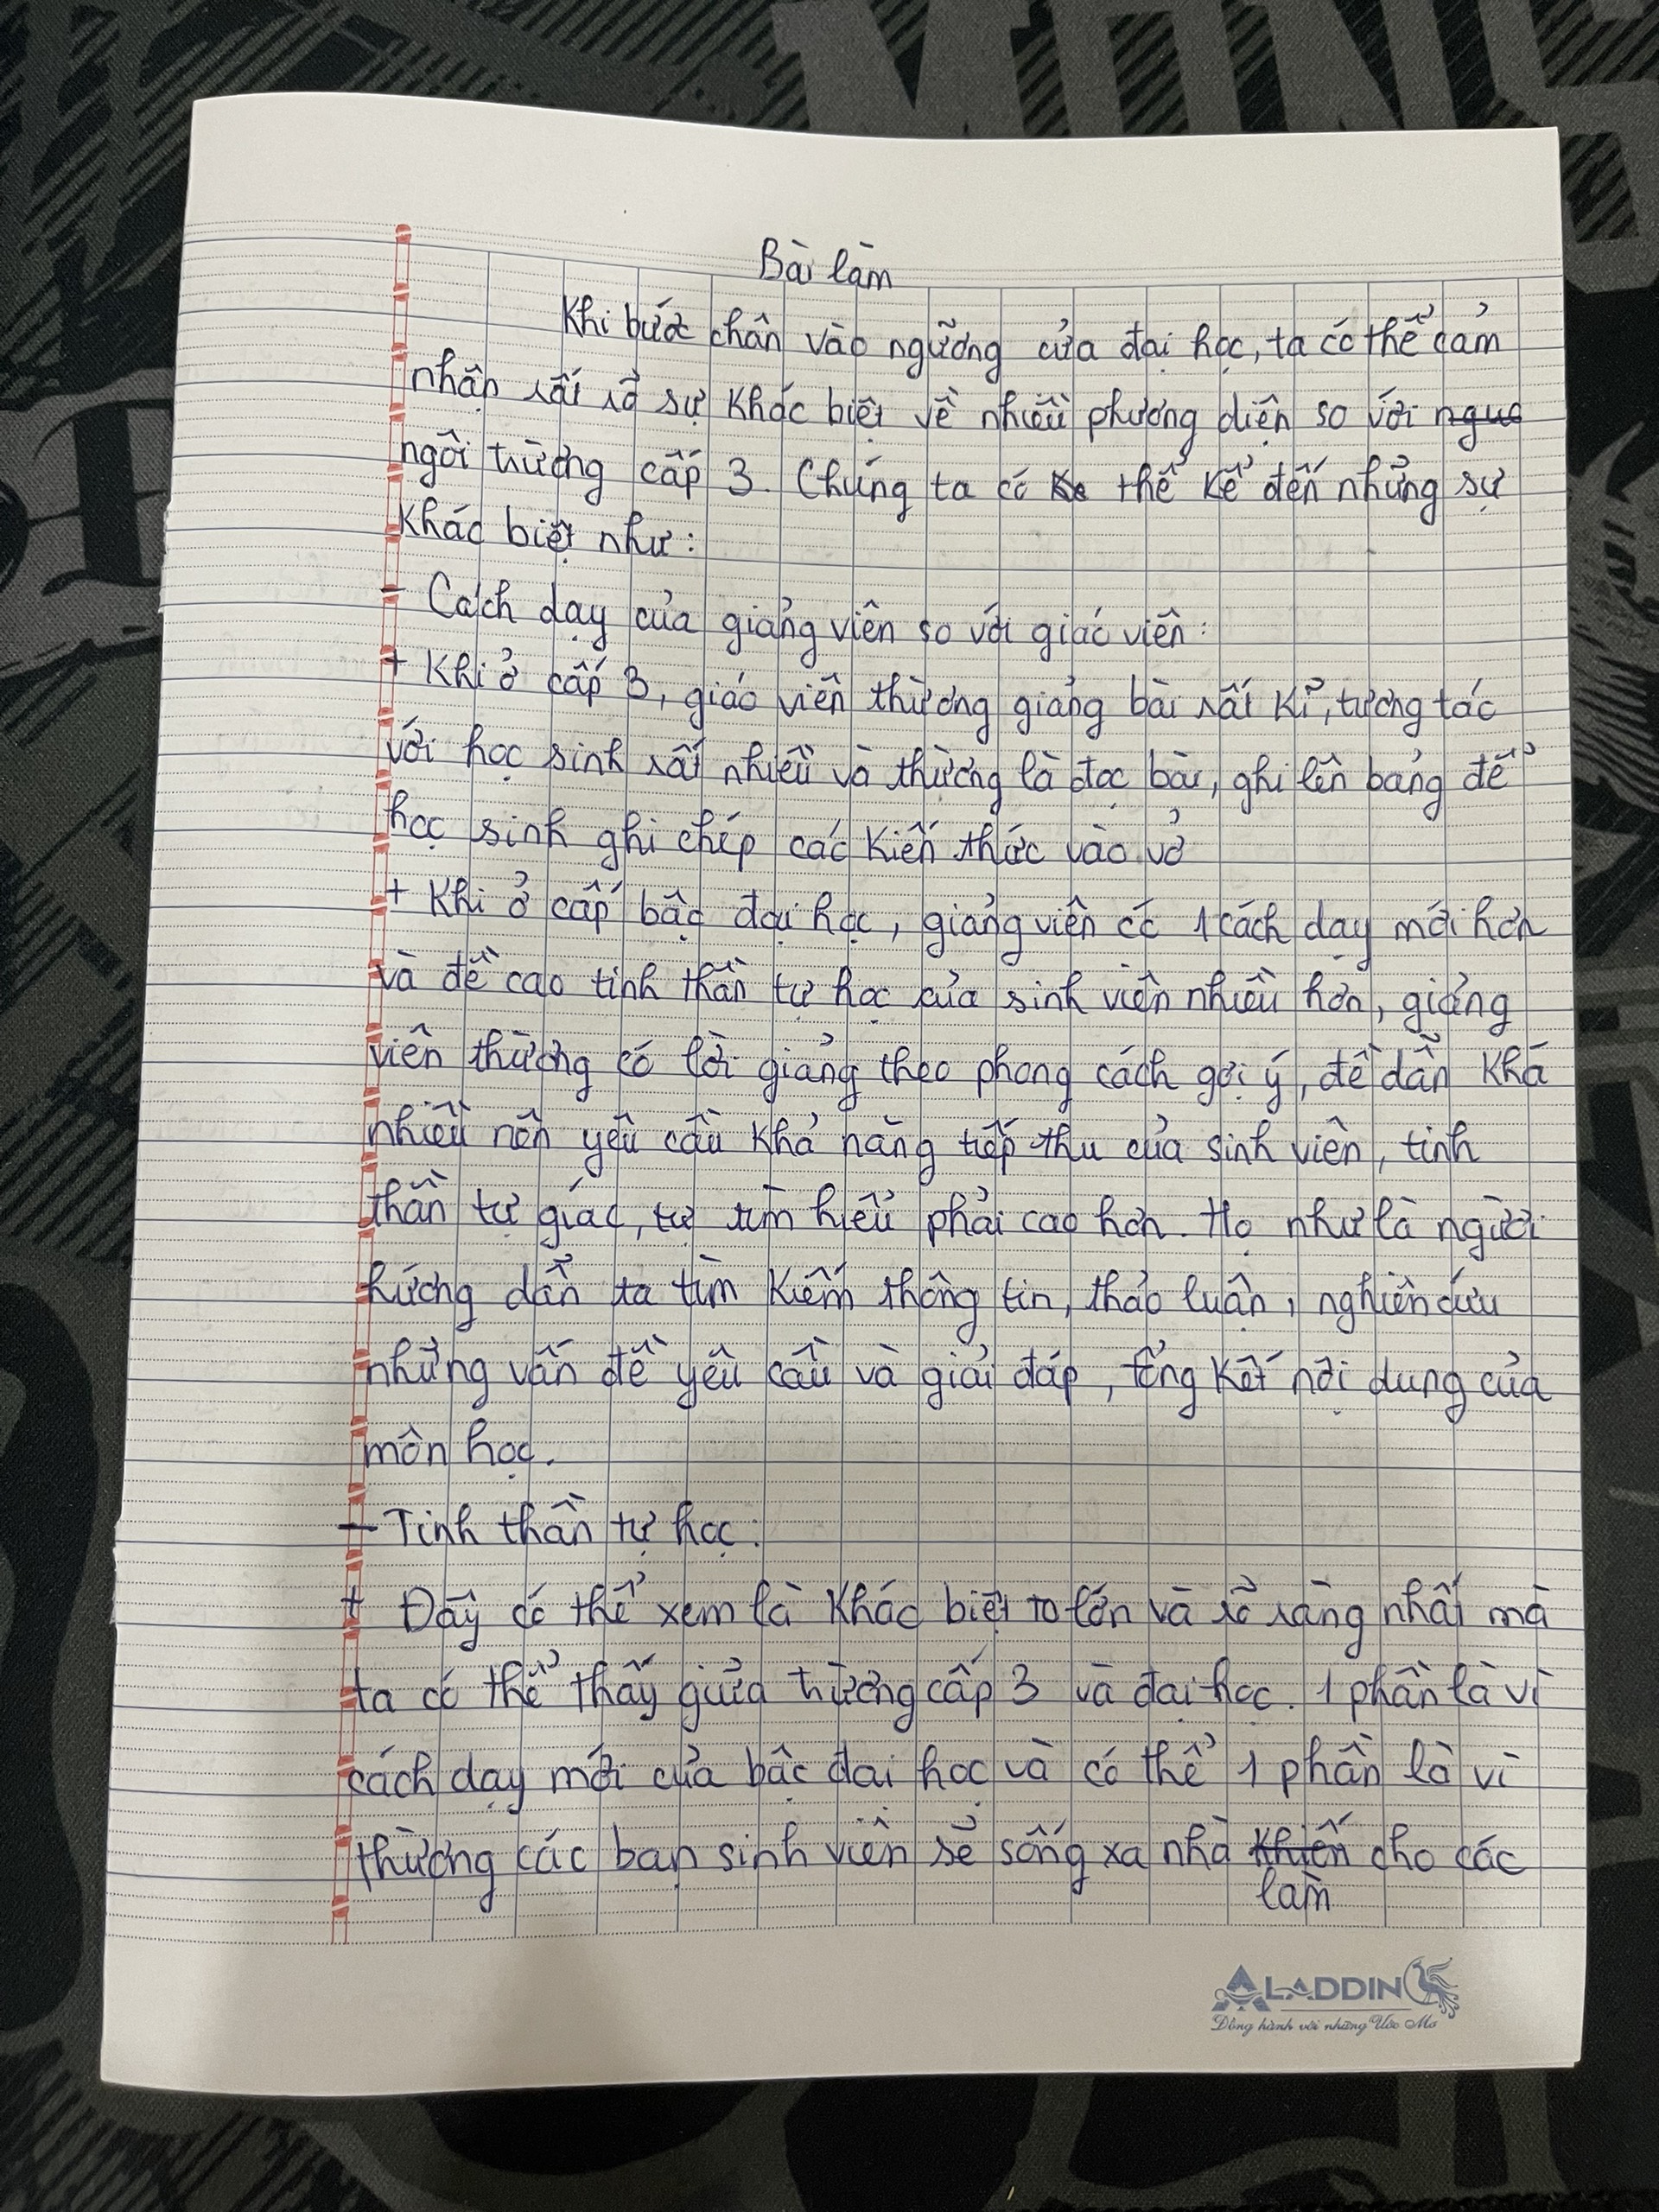 Bài làm
Khi bước chân vào ngưỡng cửa đại học, ta có thể cảm
nhận rất rõ sự khác biệt về nhiều phương diện so với ngư
ngôi trường cấp 3. Chúng ta có ke thể kể đến những sự
khác biệt như:
- Cách dạy của giảng viên so với giáo viên:
+ Khi ở cấp 3, giáo viên thường giảng bài rất kĩ, tương tác
với học sinh rất nhiều và thường là đọc bài, ghi lên bảng để
học sinh ghi chép các kiến thức vào vở
+ Khi ở cấp bậc đại học, giảng viên có 1 cách dạy mới hơn
và đề cao tinh thần tự học của sinh viên nhiều hơn, giảng
viên thường có lời giảng theo phong cách gợi ý, đề dẫn khá
nhiều nên yêu cầu khả năng tiếp thu của sinh viên, tinh
thần tự giác, tự tìm hiểu phải cao hơn. Họ như là người
hướng dẫn ta tìm kiếm thông tin, thảo luận, nghiên cứu
những vấn đề yêu cầu và giải đáp, tổng kết nội dung của
môn học.
- Tinh thần tự học:
+ Đây có thể xem là khác biệt to lớn và rõ ràng nhất mà
ta có thể thấy giữa trường cấp 3 và đại học. 1 phần là vì
cách dạy mới của bậc đại học và có thể 1 phần là vì
thường các bạn sinh viên sẽ sống xa nhà khiến cho các
làm
ALADDIN
Đồng hành với những Ước Mơ